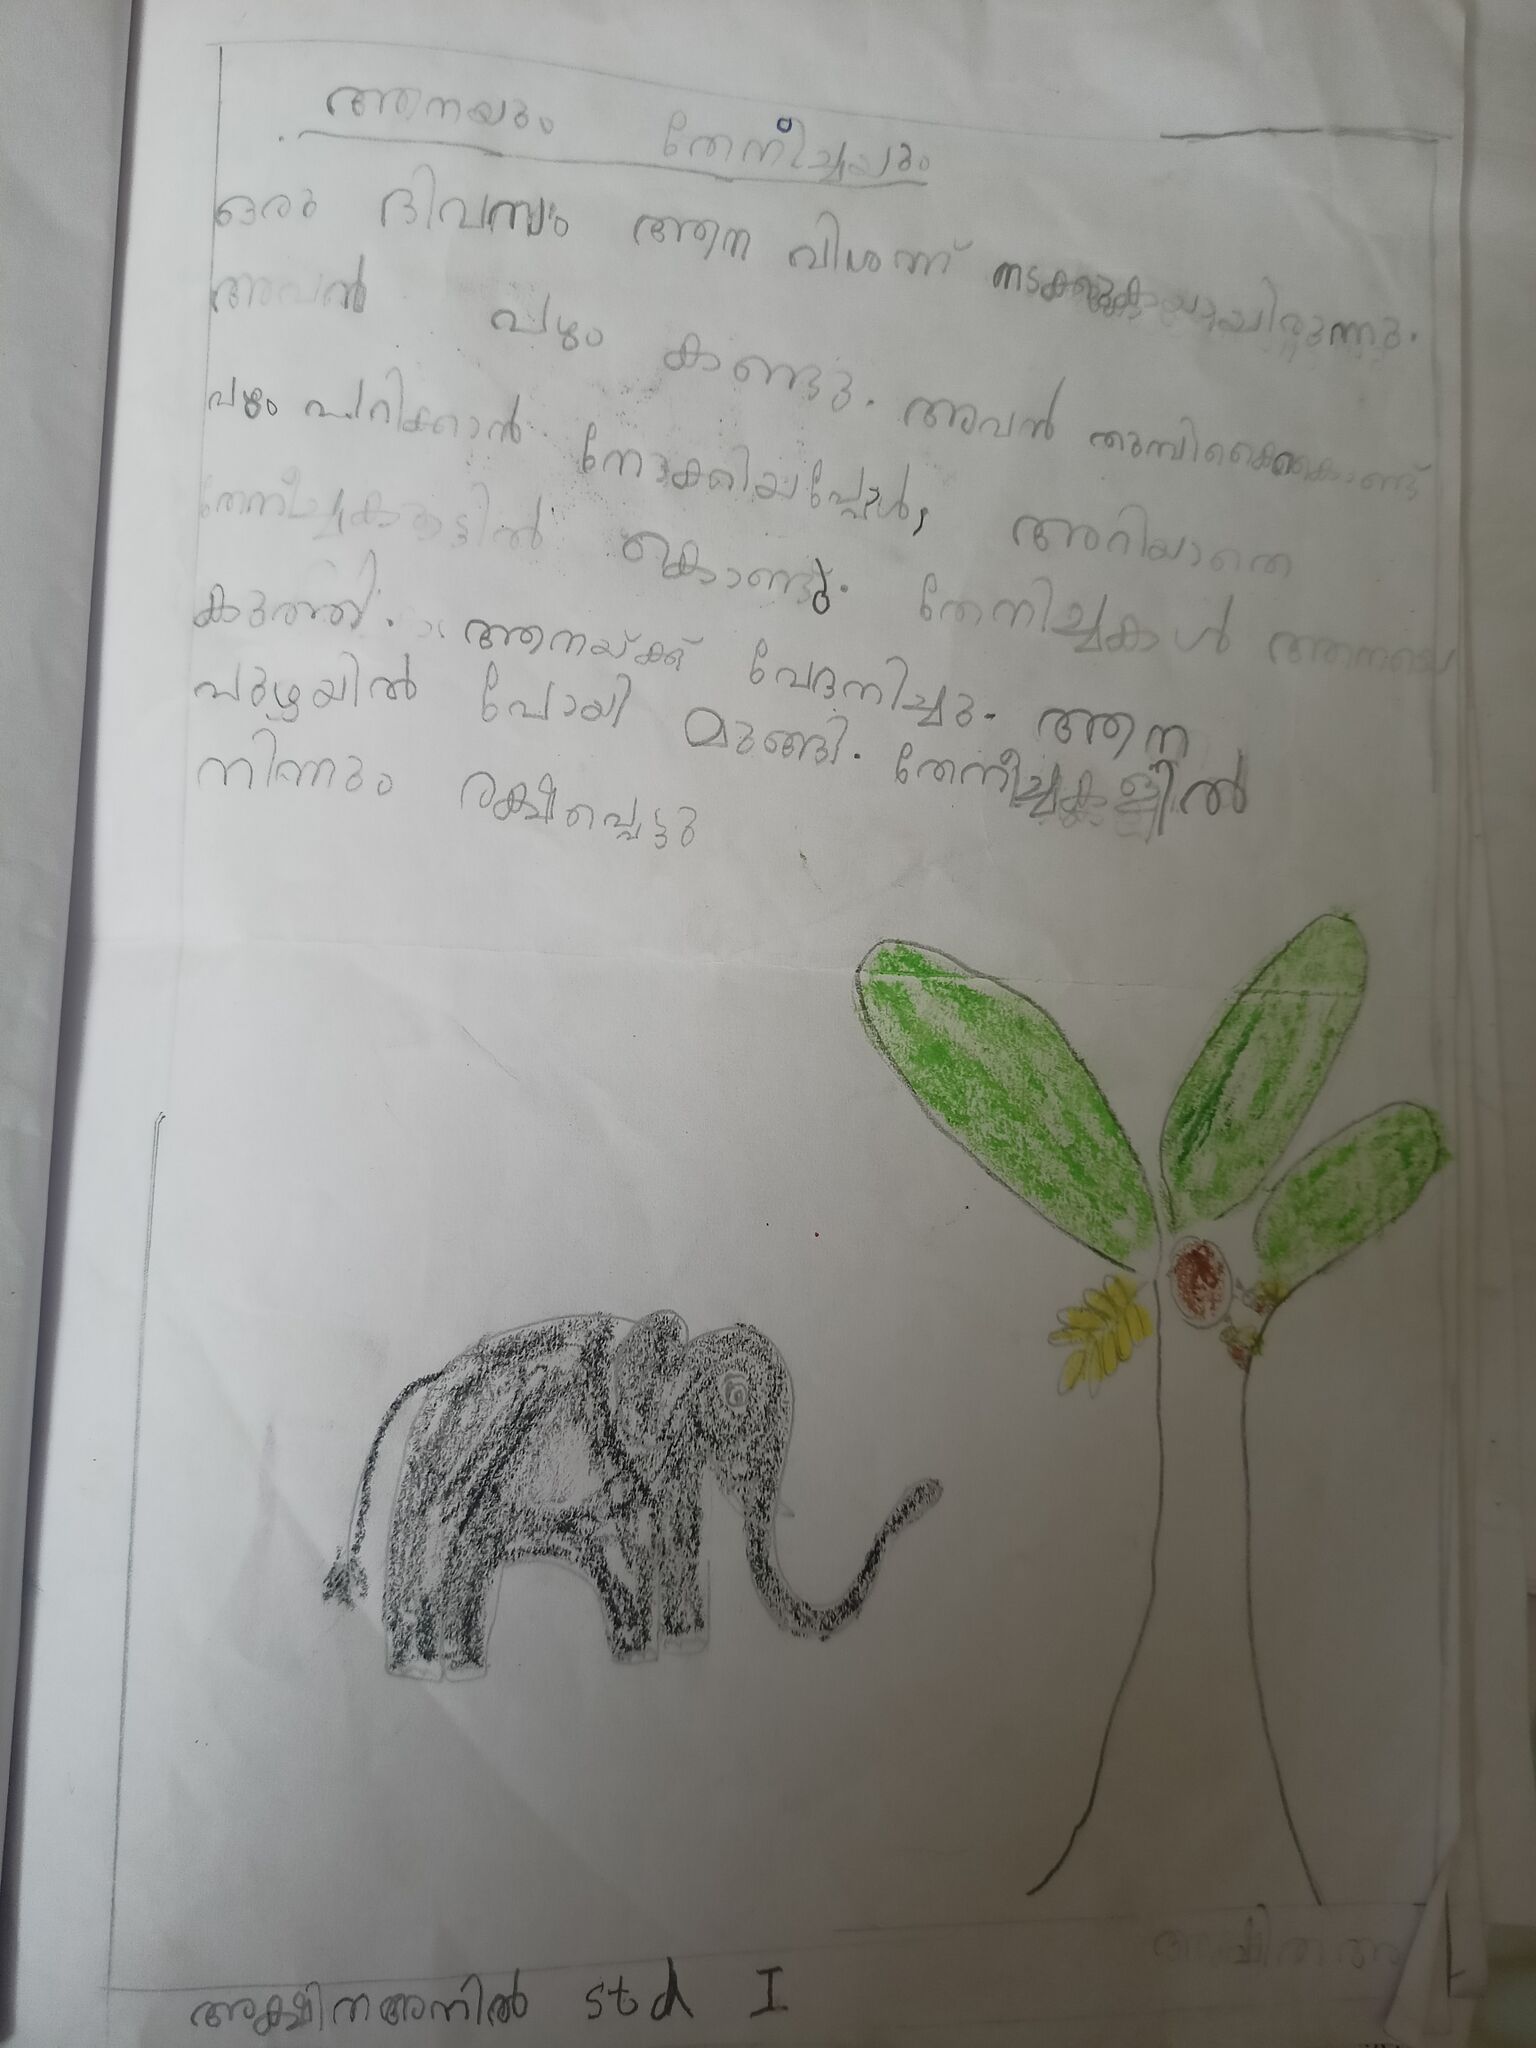 ആനയും തേനീച്ചയും
ഒരു ദിവസം ആന വിശന്ന് നടക്കുകയായിരുന്നു.
അവൻ പഴം കണ്ടു. അവൻ തുമ്പികൈകൊണ്ട്
പഴം പറിക്കാൻ നോക്കിയപ്പോൾ, അറിയാതെ
തേനീച്ചകൂട്ടിൽ കൊണ്ടു. തേനിച്ചകാൾ ആനയെ
കുത്തി. ആനയ്ക്ക് വേദനിച്ചു. ആന
പുഴയിൽ പോയി മുങ്ങി. തേനീച്ചകളിൽ
നിന്നും രക്ഷപ്പെട്ടു
അക്ഷിതഅനിൽ std I